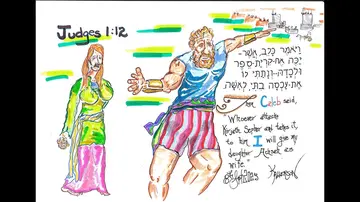 Judges 1:12
וַיֹּאמֶר כָּלֵב, אֲשֶׁר-
יַכֶּה אֶת-קִרְיַת-סֵפֶר
וּלְכָדָהּ--וְנָתַתִּי לוֹ
אֶת-עַכְסָה בִתִּי, לְאִשָּׁה.
Then Caleb said,
"Whoever attacks
Kiriath Sepher and takes it,
to him I will give my
daughter Achsah as
wife."